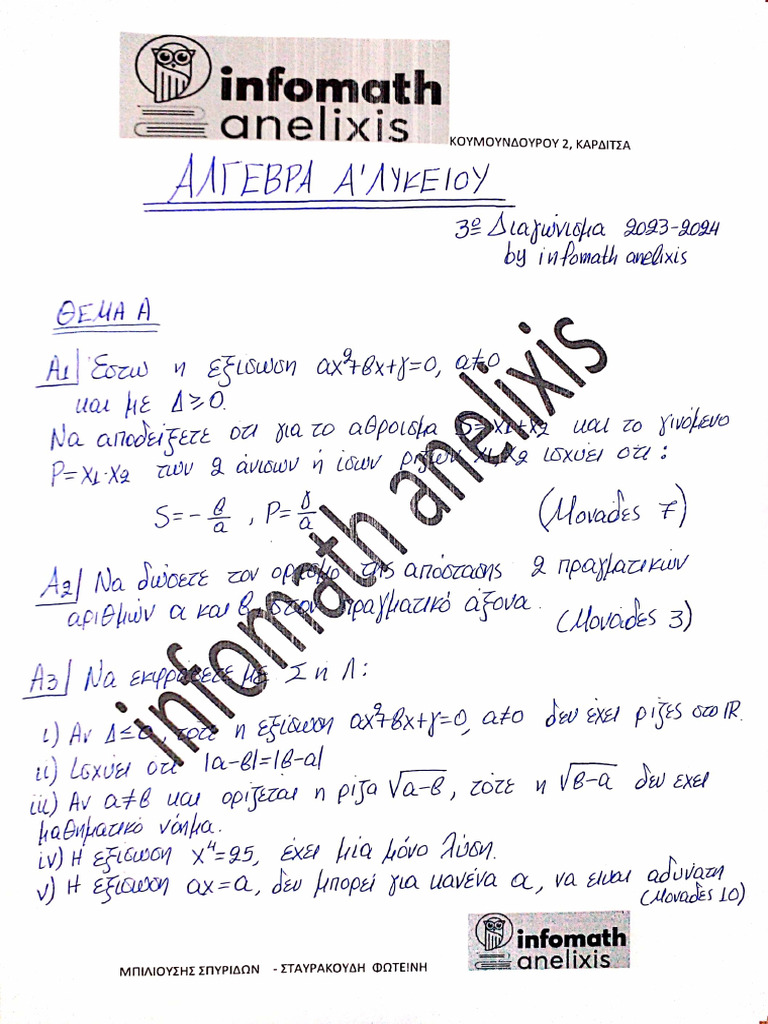 infomath
anelixis
ΚΟΥΜΟΥΝΔΟΥΡΟΥ 2, ΚΑΡΔΙΤΣΑ
ΑΛΓΕΒΡΑ Α' ΛΥΚΕΙΟΥ
3º Διαγώνισμα 2023-2024
by infomath anelixis
ΘΕΜΑ Α
Α1 Έστω η εξίσωση αx²+βx+γ=0, α≠0
και με Δ≥0.
Να αποδείξετε οτι για το αθροισμα S=x1+x2 και το γινόμενο
P=x1·x2 των 2 άνισων ή ίσων ριζών x1, x2 ισχύει οτι:
S=-β/α , P=γ/α (Μονάδες 7)
Α2 Να δώσετε τον ορισμό της απόστασης 2 πραγματικών
αριθμών α και β, στον πραγματικό άξονα. (Μονάδες 3)
Α3 Να εκφράσετε με Σ ή Λ:
i) Αν Δ≤0, τότε η εξίσωση αx²+βx+γ=0, α≠0 δεν έχει ρίζες στο ℝ.
ii) Ισχύει οτι |α-β|=|β-α|
iii) Αν α≠β και ορίζεται η ρίζα √α-β, τότε η √β-α δεν εχει
μαθηματικό νόημα.
iv) Η εξίσωση x⁴=25, έχει μία μόνο λύση.
v) Η εξίσωση αx=α, δεν μπορεί για κανένα α, να ειναι αδύνατη
(Μονάδες 10)
infomath anelixis
infomath
anelixis
ΜΠΙΛΙΟΥΣΗΣ ΣΠΥΡΙΔΩΝ - ΣΤΑΥΡΑΚΟΥΔΗ ΦΩΤΕΙΝΗ